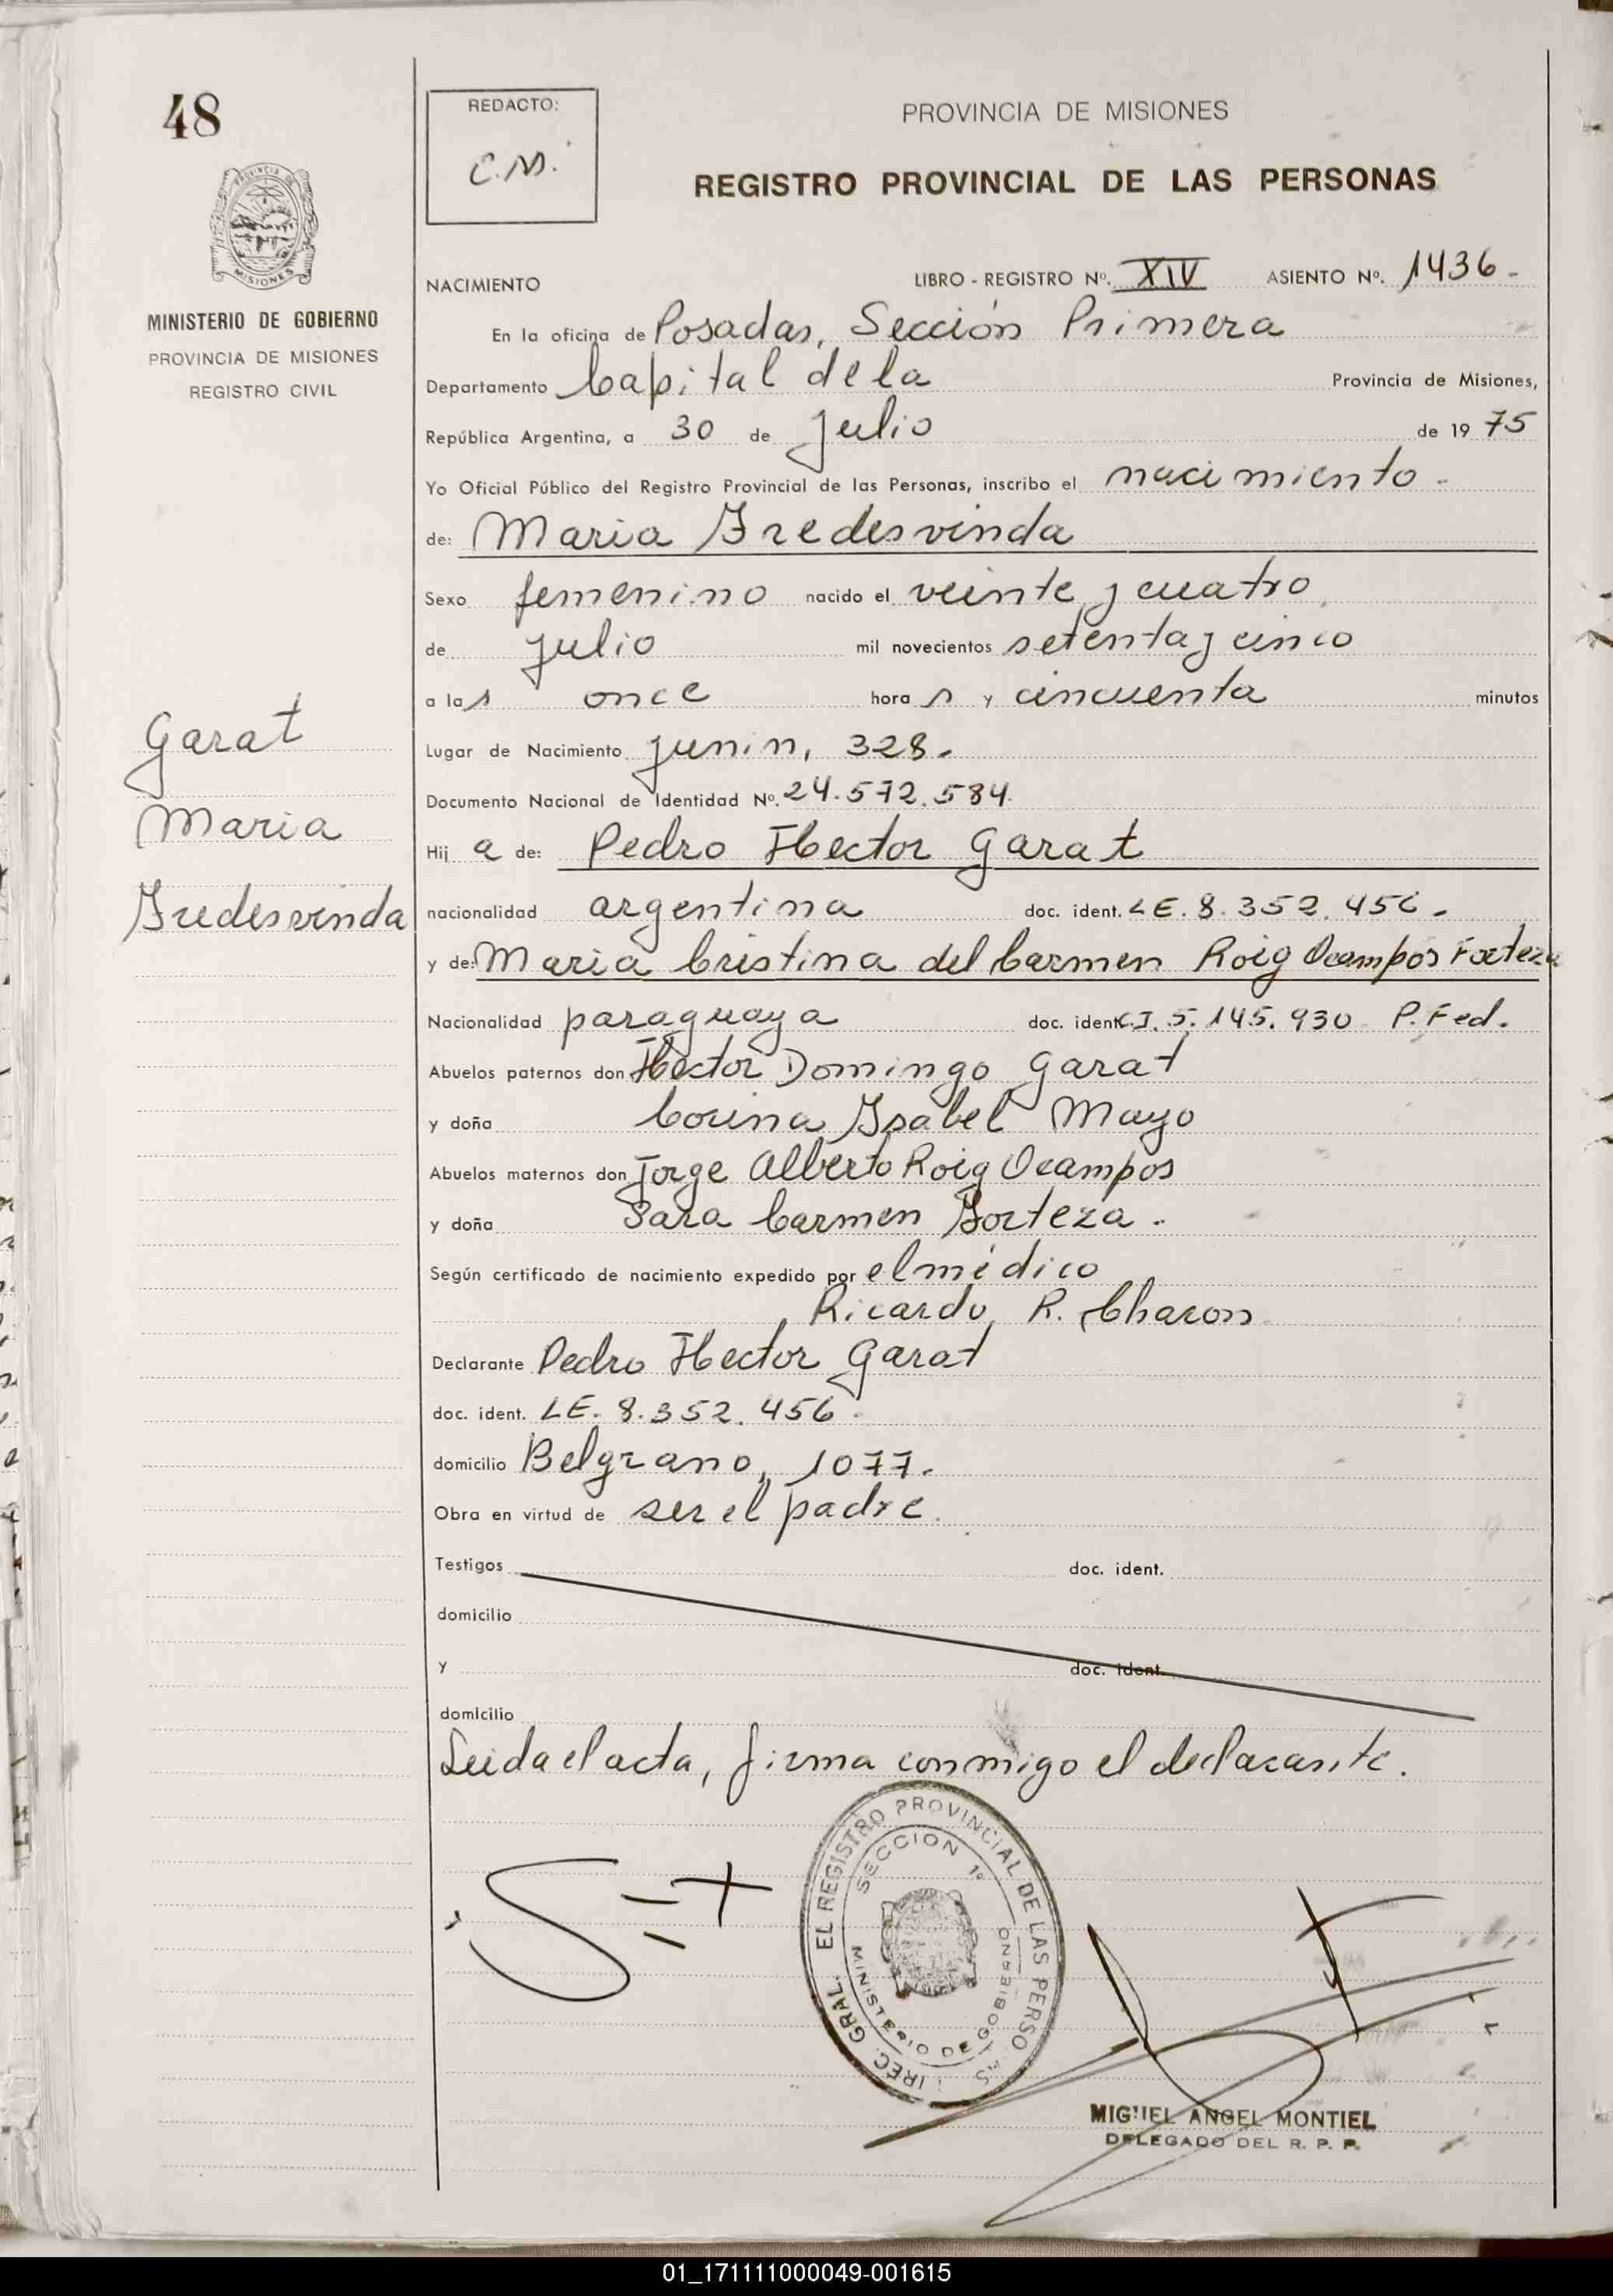 48
REDACTO:
C.M.
PROVINCIA DE MISIONES
REGISTRO PROVINCIAL DE LAS PERSONAS
MISIONES
MINISTERIO DE GOBIERNO
PROVINCIA DE MISIONES
REGISTRO CIVIL
NACIMIENTO LIBRO - REGISTRO Nº. XIV ASIENTO Nº. 1436.-
En la oficina de Posadas, Sección Primera
Departamento Capital de la Provincia de Misiones,
República Argentina, a 30 de Julio de 19 75
Yo Oficial Público del Registro Provincial de las Personas, inscribo el nacimiento.-
de: Maria Fredesvinda
Sexo femenino nacido el veinte y cuatro
de julio mil novecientos setenta y cinco
a las once horas y cincuenta minutos
Lugar de Nacimiento Junin, 328.
Documento Nacional de Identidad Nº. 24.572.584.
Garat
Maria
Fredesvinda
Hija de: Pedro Hector Garat
nacionalidad argentina doc. ident. LE. 8.352.456.
y de: Maria Cristina del Carmen Roig Ocampos Forteza
Nacionalidad paraguaya doc. ident. C.I. 5.145.930 P. Fed.
Abuelos paternos don Hector Domingo Garat
y doña Corina Isabel Mayo
Abuelos maternos don Jorge Alberto Roig Ocampos
y doña Sara Carmen Forteza.
Según certificado de nacimiento expedido por el médico
Ricardo R. Charon
Declarante Pedro Hector Garat
doc. ident. LE. 8.352.456.
domicilio Belgrano, 1077.
Obra en virtud de ser el padre.
Testigos doc. ident.
domicilio
y doc. ident.
domicilio
Leida el acta, firma conmigo el declarante.
IREC. GRAL. EL REGISTRO PROVINCIAL DE LAS PERSO
SECCION 1º
MINISTERIO DE GOBIERNO
MIGUEL ANGEL MONTIEL
DELEGADO DEL R. P. P.
01_171111000049-001615